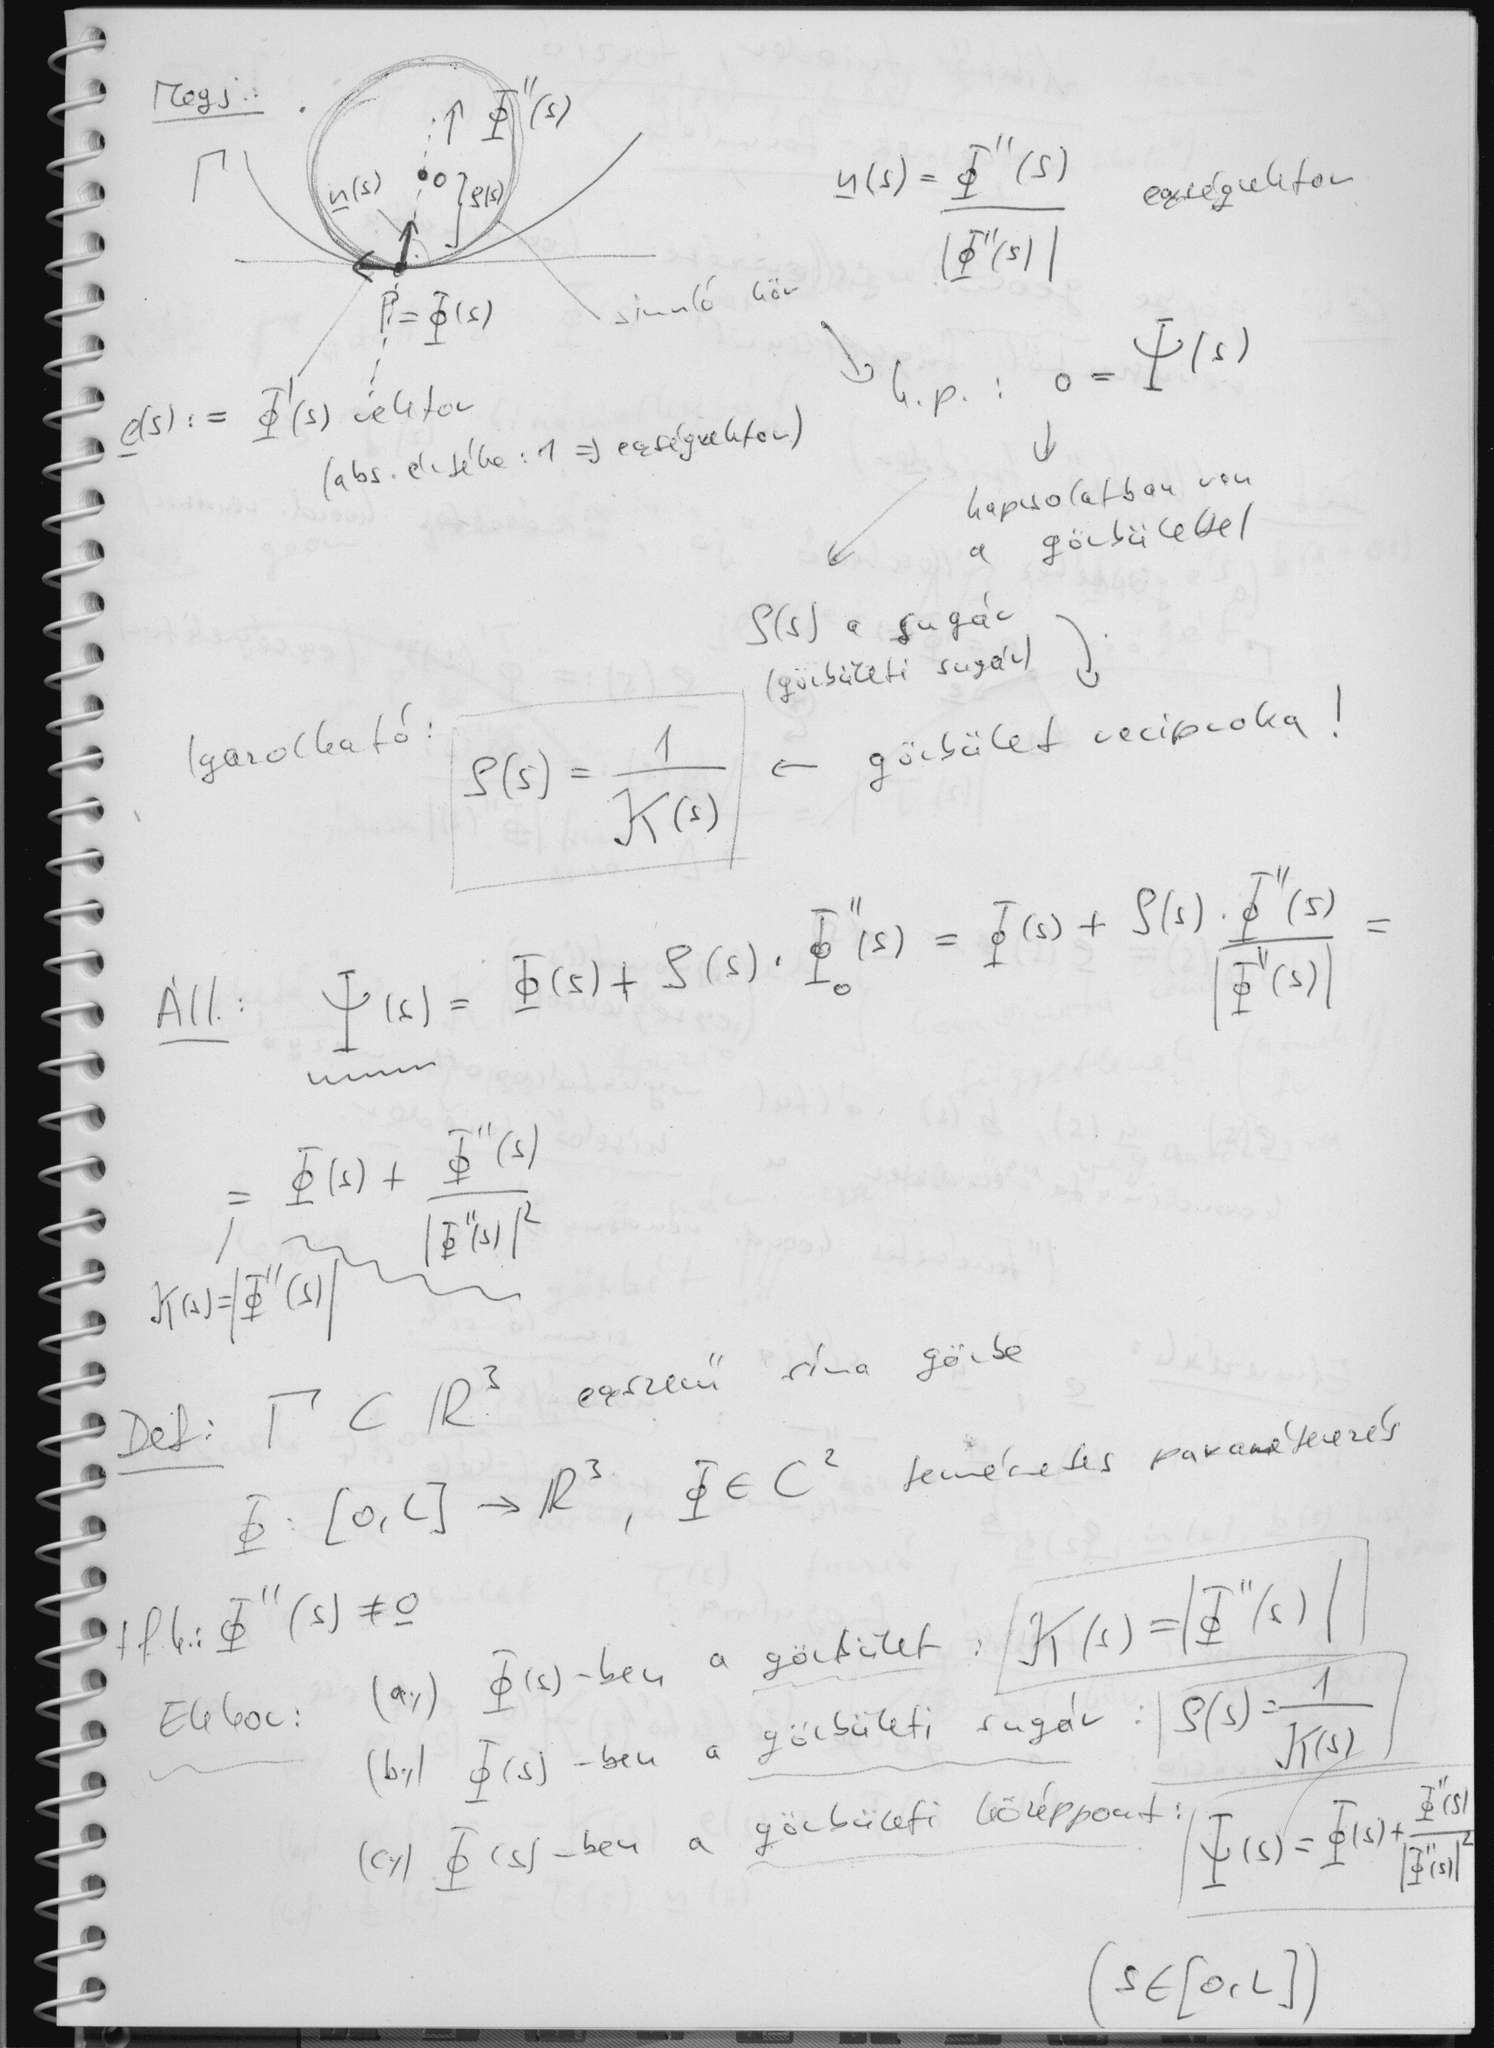 Megj.:
Γ
Φ''(s)
n(s)
o
ρ(s)
P = Φ(s)
simuló kör
n(s) = Φ''(s) / |Φ''(s)| egységvektor
e(s) := Φ'(s) vektor
(abs. értéke: 1 ⇒ egységvektor)
k.p.: o = Ψ(s)
kapcsolatban van
a görbülettel
ρ(s) a sugár
(görbületi sugár)
Igazolható: ρ(s) = 1 / K(s) ← görbület reciproka!
Áll.: Ψ(s) = Φ(s) + ρ(s) · Φ''₀(s) = Φ(s) + ρ(s) · Φ''(s) / |Φ''(s)| =
= Φ(s) + Φ''(s) / |Φ''(s)|²
K(s) = |Φ''(s)|
Def.: Γ ⊂ ℝ³ egyszerű sima görbe
Φ: [0,L] → ℝ³, Φ ∈ C² természetes paraméterezés
Tfh.: Φ''(s) ≠ 0
Ekkor: (a,) Φ(s)-ben a görbület: K(s) = |Φ''(s)|
(b,) Φ(s)-ben a görbületi sugár: ρ(s) = 1 / K(s)
(c,) Φ(s)-ben a görbületi középpont: Ψ(s) = Φ(s) + Φ''(s) / |Φ''(s)|²
(s ∈ [0,L])